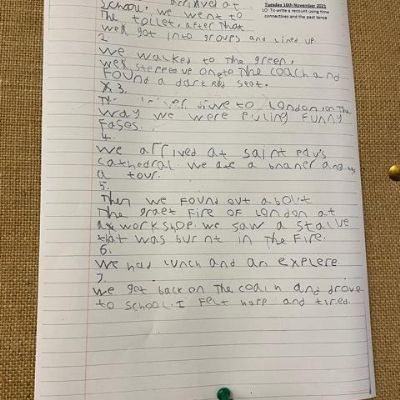 Tuesday 16th November 2021
LO: To write a recount using time
connectives and the past tense
School. we arrived at
we went to
The toilet. after That
we got into groups and lined up
2.
we walked to The green,
we on to The coach and
Found a dark red seat.
3.
The drive to London on The
way we were Funny
Fases.
4.
we arrived at saint
cathedral we a and
a tour.
5.
Then we Found out about
The graet Fire of London at
a workshope. we saw a statue
that was burnt in The Fire.
6.
we had lunch and an explere.
7.
we get back on The coach and drove
to school. I Felt and tired.